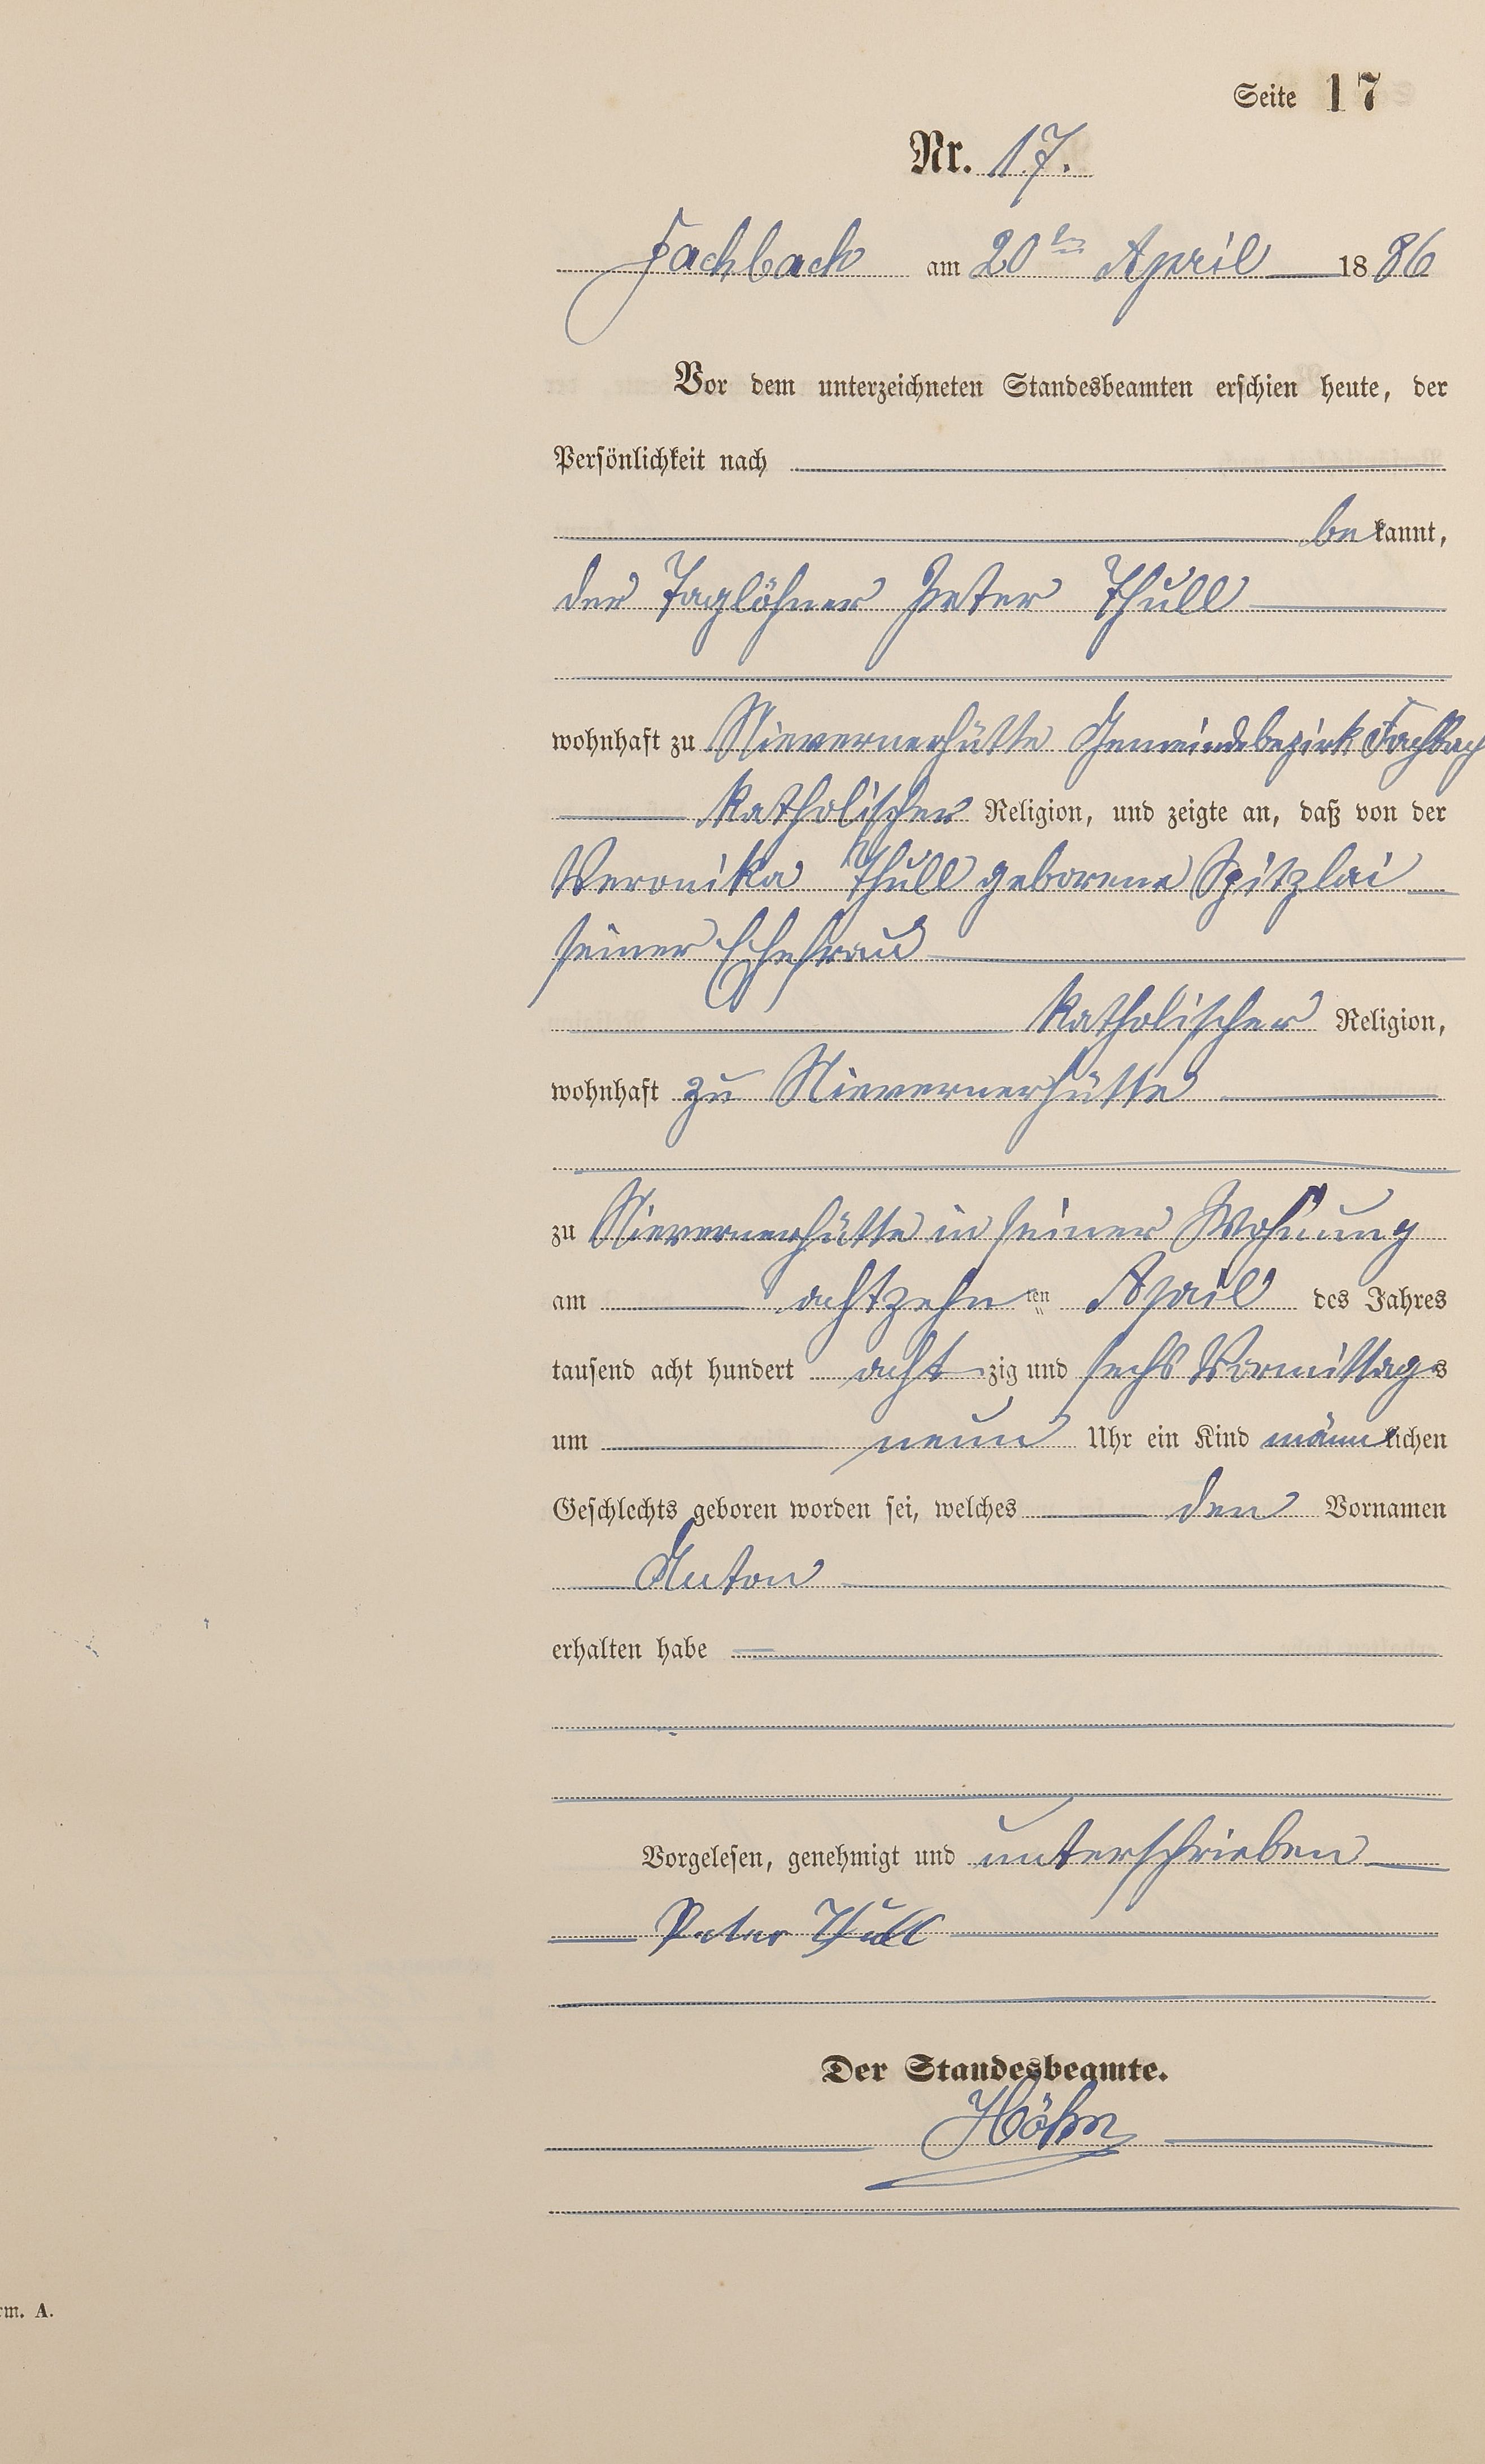 Seite 17
Nr. 17.
Fachbach am 20ten April 1886
Vor dem unterzeichneten Standesbeamten erschien heute, der
Persönlichkeit nach
bekannt,
der Taglöhner Peter Thull
wohnhaft zu Nievernerhütte Gemeindebezirk Fachbach
katholischer Religion, und zeigte an, daß von der
Veronika Thull geborene Spitzlai
seiner Ehefrau
katholischer Religion,
wohnhaft zu Nievernerhütte
zu Nievernerhütte in seiner Wohnung
am achtzehnten April des Jahres
tausend acht hundert achtzig und sechs Vormittags
um neun Uhr ein Kind männlichen
Geschlechts geboren worden sei, welches den Vornamen
Anton
erhalten habe
Vorgelesen, genehmigt und unterschrieben
Peter Thull
Der Standesbeamte.
Höhn
rm. A.